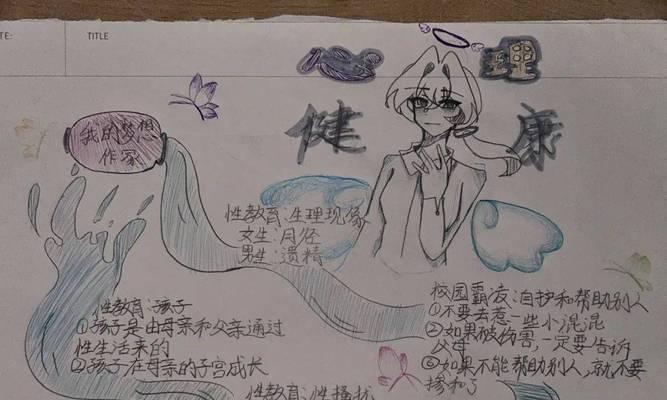 TE:
TITLE
心理
健康
我的梦想
作家
性教育:生理现象
女生:月径
男生:遗精
性教育:孩子
①孩子是由母亲和父亲通过
性生活来的
②孩子在母亲的子宫成长
校园霸凌:自护和帮助别人
①不要去惹一些小混混
②如果被伤害,一定要告诉
父母
③如果不能帮助别人,就不要
掺和了
性教育:性搔扰